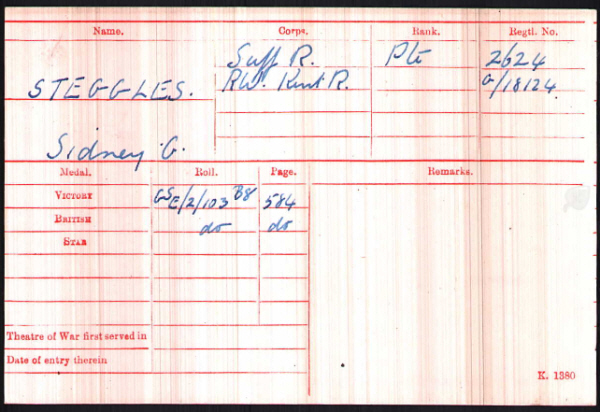 Name. Corps. Rank. Regtl. No.
Suff R. Pte 2624
STEGGLES. RW. Kent R. G/18124
Sidney G.
Medal. Roll. Page. Remarks.
VICTORY GSE/2/103 B8 584
BRITISH do do
STAR
Theatre of War first served in
Date of entry therein
K. 1380